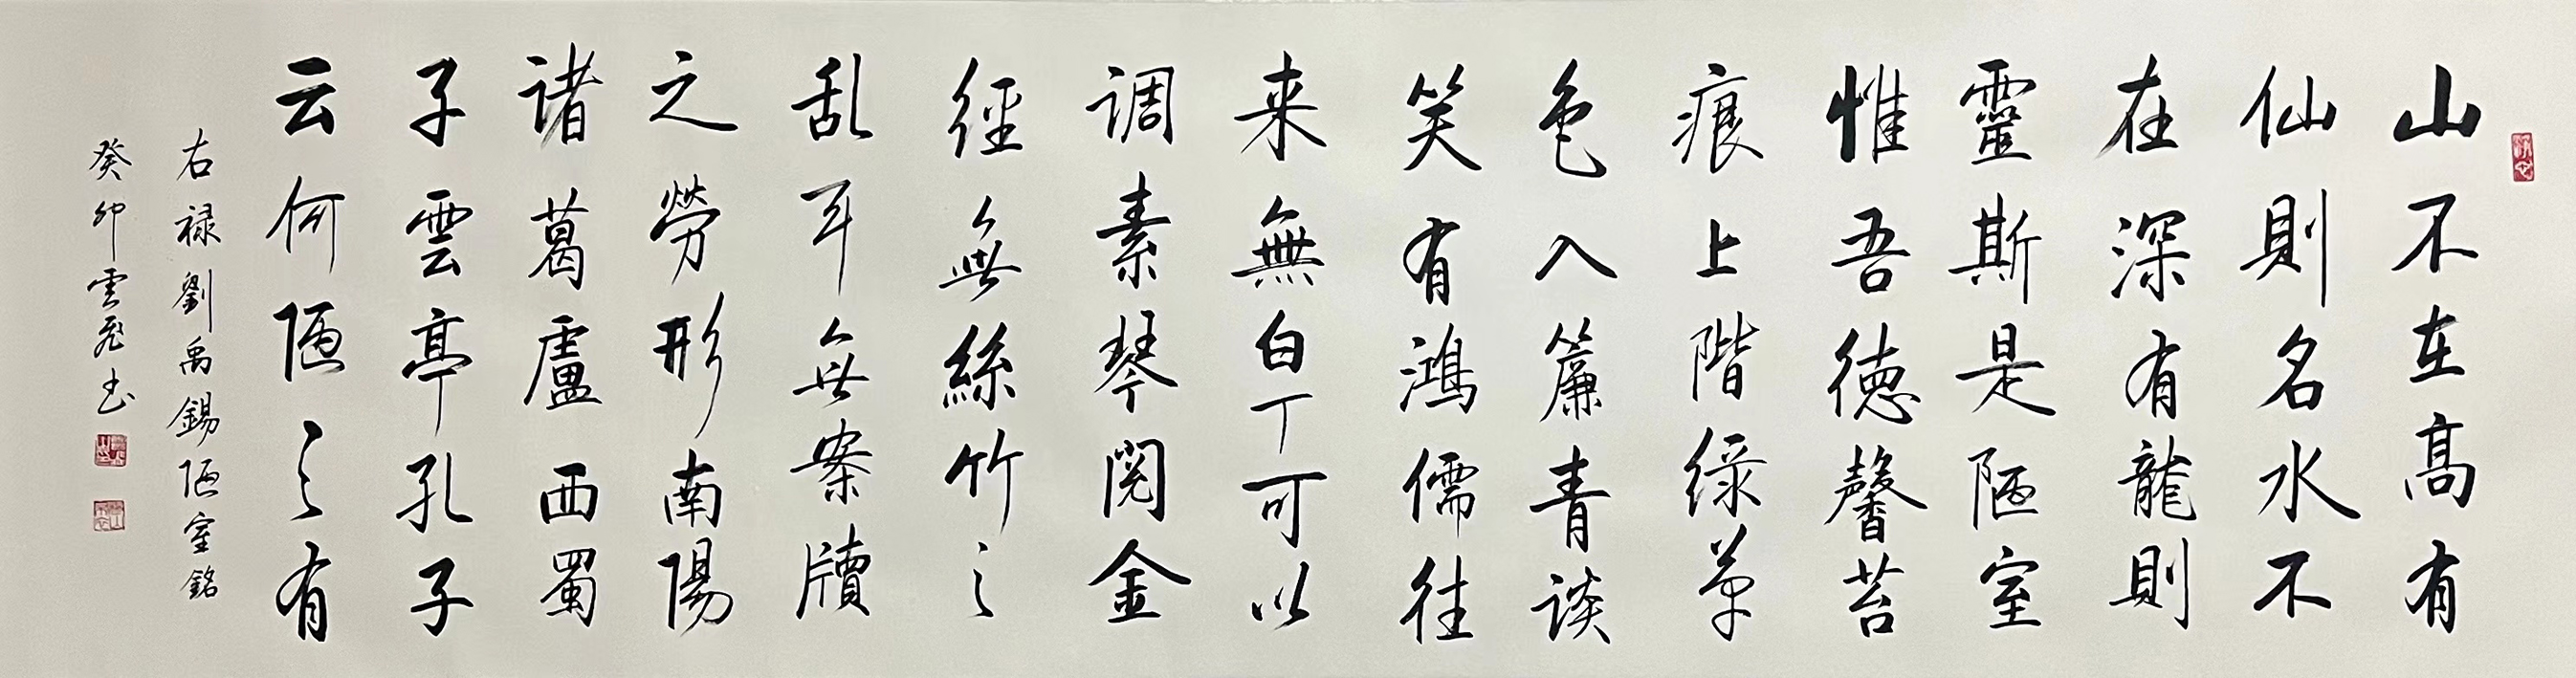 山不在高有
仙則名水不
在深有龍則
靈斯是陋室
惟吾德馨苔
痕上階綠草
色入簾青談
笑有鴻儒往
来無白丁可以
调素琴閱金
經無絲竹之
乱耳無案牘
之勞形南陽
诸葛廬西蜀
子雲亭孔子
云何陋之有
右禄劉禹錫陋室銘
癸卯雲飛书